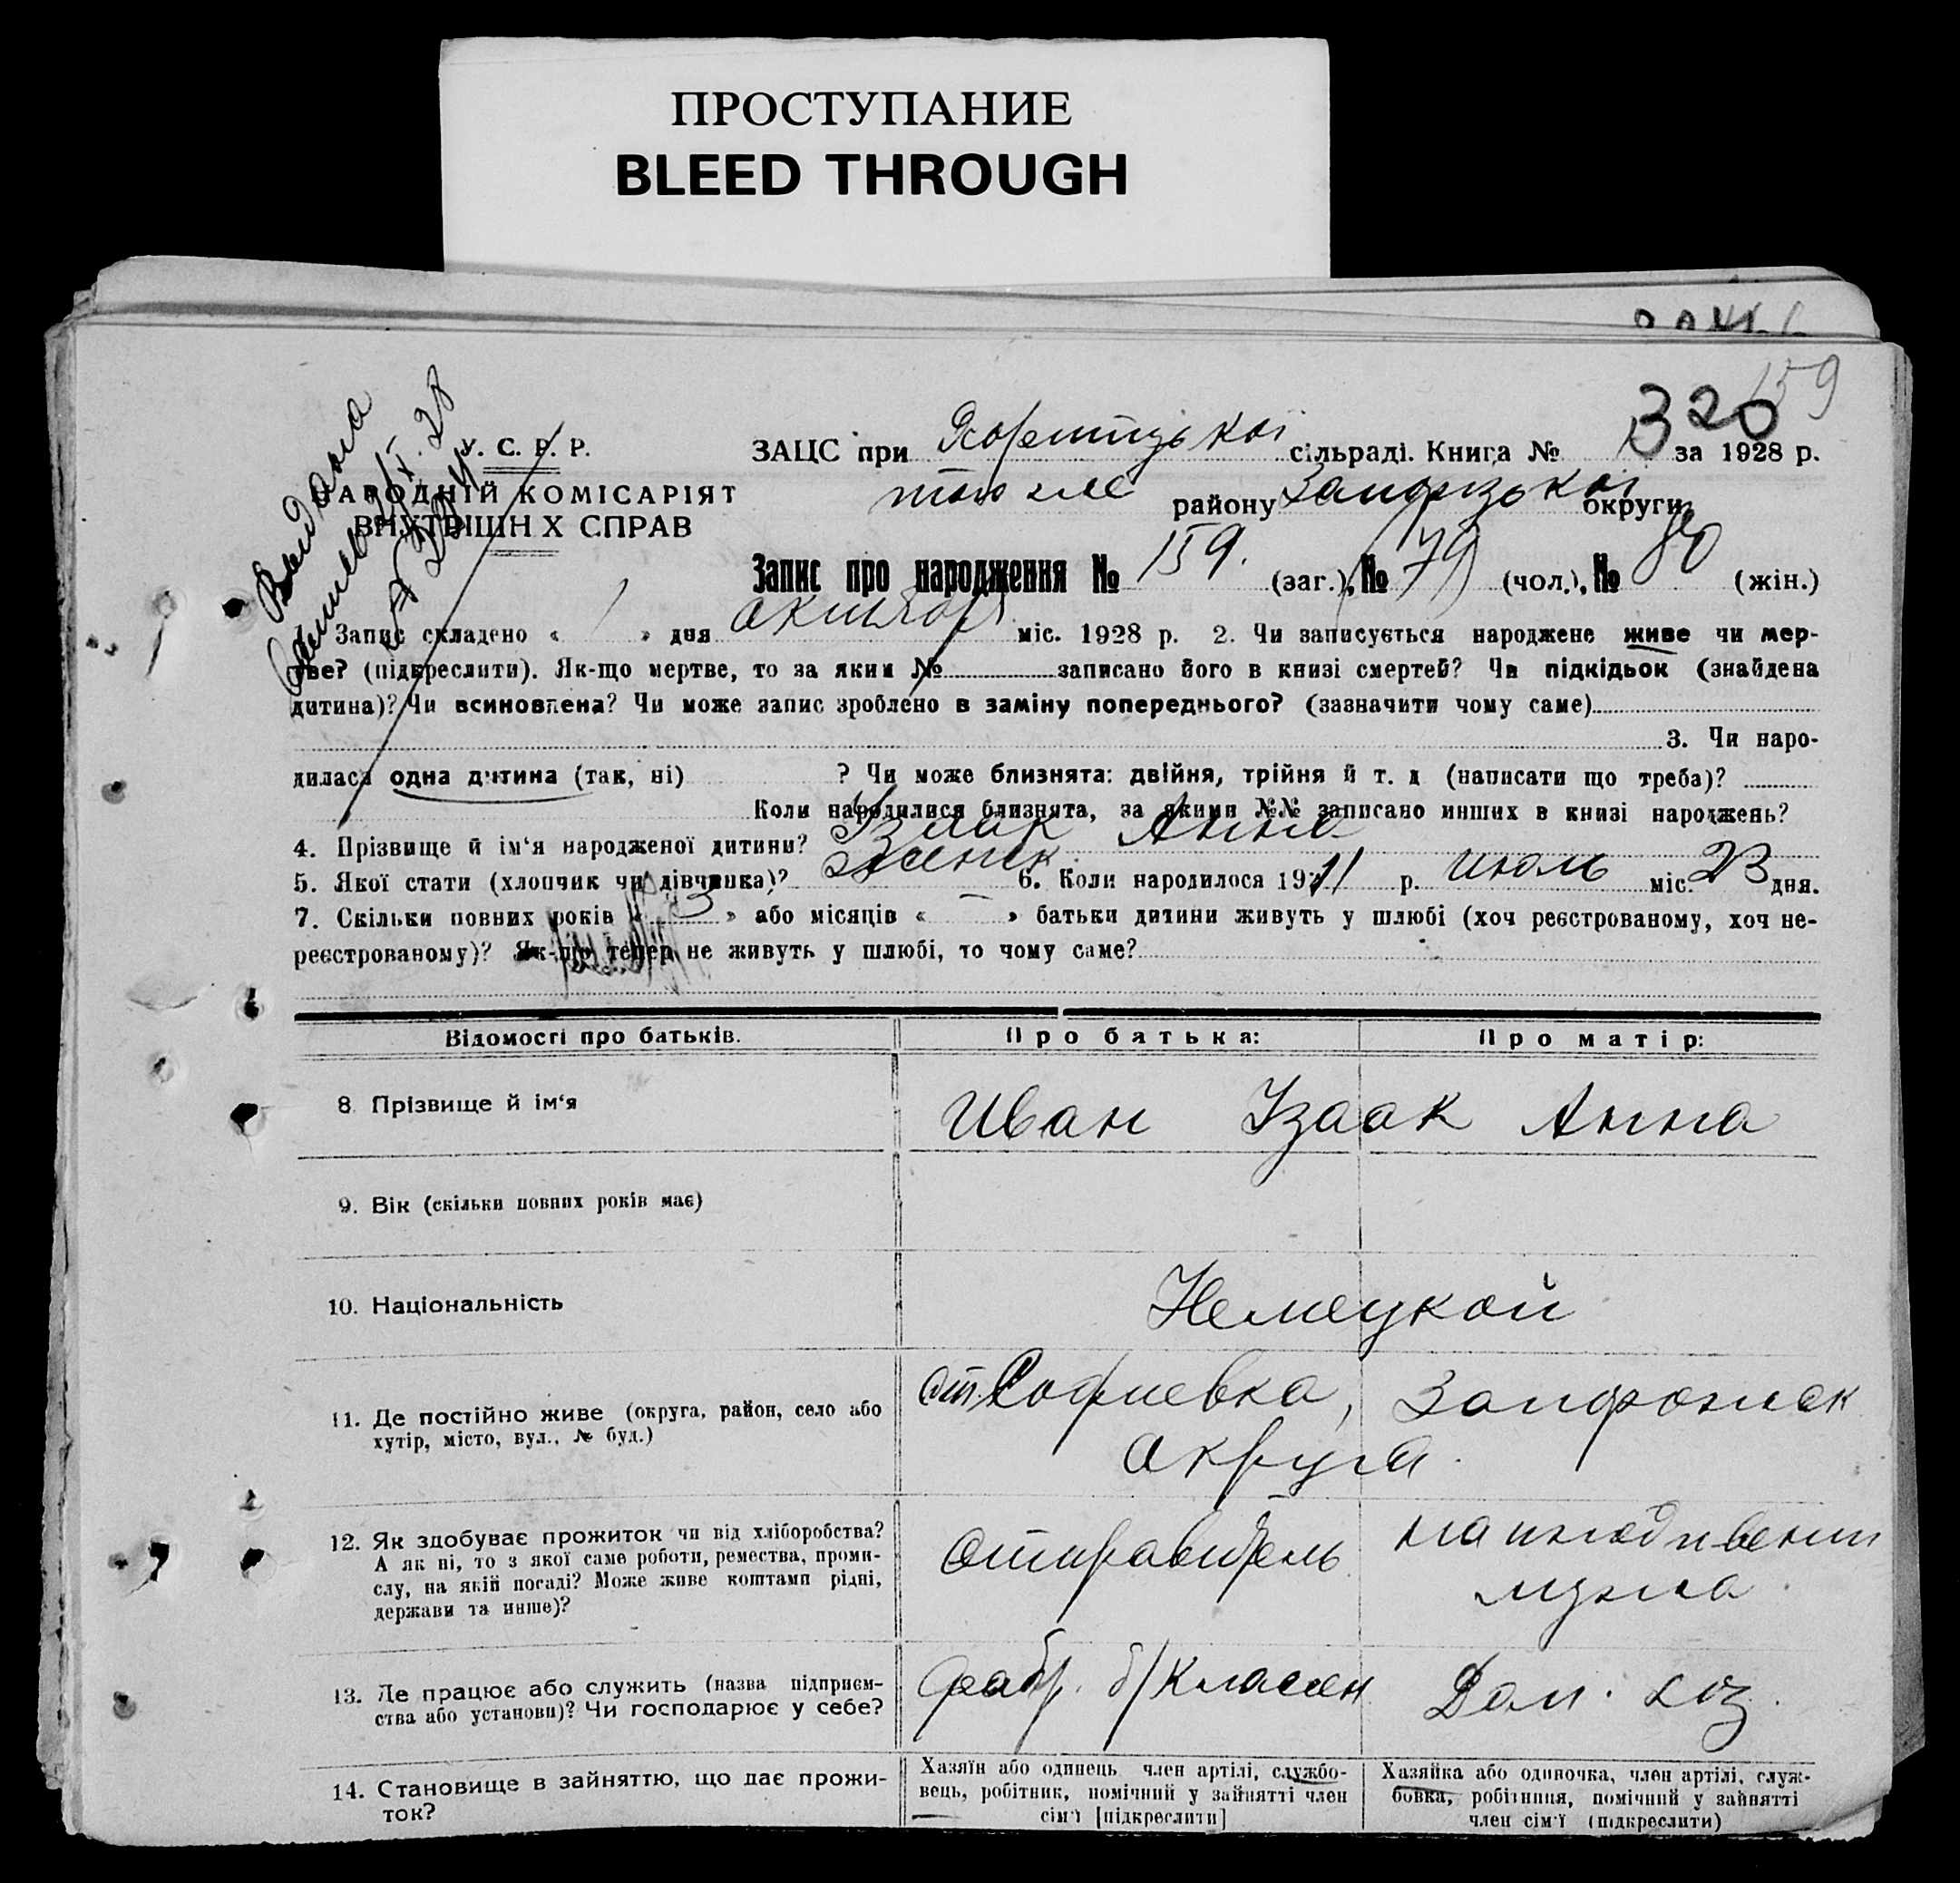 ПРОСТУПАНИЕ
BLEED THROUGH
159
320
У. С. Р. Р.
НАРОДНІЙ КОМІСАРІЯТ
ВНУТРІШН Х СПРАВ
Выдана
ЗАЦС при Хортицької сільраді. Книга № за 1928 р.
того же району Запорізької округи
Запис про народження № 159. (заг.), № 79 (чол.), № 80 (жін.)
1. Запис складено « 1 » дня октября міс. 1928 р. 2. Чи записується народжене живе чи мер-
тве? (підкреслити). Як-що мертве, то за яким № записано його в книзі смертей? Чи підкідьок (знайдена
дитина)? Чи всиновлена? Чи може запис зроблено в заміну попереднього? (зазначити чому саме)
3. Чи наро-
дилася одна дитина (так, ні) ? Чи може близнята: двійня, трійня й т. д (написати що треба)?
Коли народилися близнята, за якими №№ записано инших в книзі народжень?
4. Прізвище й ім'я народженої дитини? Ізаак Анна
5. Якої стати (хлопчик чи дівчинка)? Женск. 6. Коли народилося 1911 р. июль міс. 23 дня.
7. Скільки повних років « 3 » або місяців « — » батьки дитини живуть у шлюбі (хоч реєстрованому, хоч не-
реєстрованому)? Як-що тепер не живуть у шлюбі, то чому саме?
Відомості про батьків. Про батька: Про матір:
8. Прізвище й ім'я Иван Ізаак Анна
9. Вік (скільки повних років має)
10. Національність Немецкой
11. Де постійно живе (округа, район, село або
хутір, місто, вул., № буд.) ст. Софиевка, Запорожск
округа.
12. Як здобуває прожиток чи від хліборобства?
А як ні, то з якої саме роботи, ремества, проми-
слу, на якій посаді? Може живе коштами рідні,
держави та инше)? отправитель на иждивении
мужа.
13. Де працює або служить (назва підприєм-
ства або установи)? Чи господарює у себе? фабр. б/ Классен Дом. хоз.
14. Становище в зайняттю, що дає прожи-
ток?
Хазяїн або одинець член артілі, службо-
вець, робітник, помічний у зайнятті член
сім'ї [підкреслити]
Хазяйка або одиночка, член артілі, служ-
бовка, робітниця, помічний у зайнятті
член сім'ї (підкреслити)